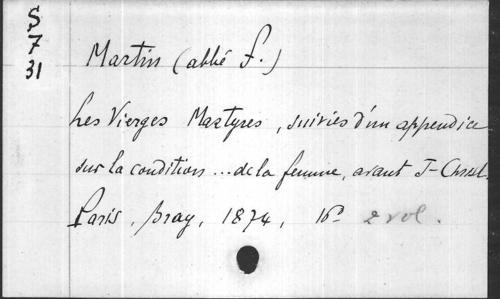 S
7
31
Martin (abbé f.)
Les Vierges Martyres, suivies d'un appendice
sur la condition ... de la femme, avant J-Christ.
Paris, Bray, 1874, 16° 2 vol.